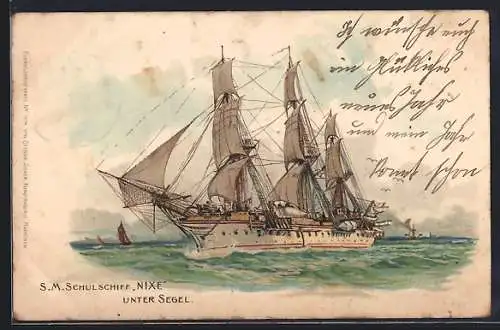 Ich wünsche euch
ein glükliches
neues Jahr
und mein
schon
S.M. SCHULSCHIFF „NIXE"
UNTER SEGEL.